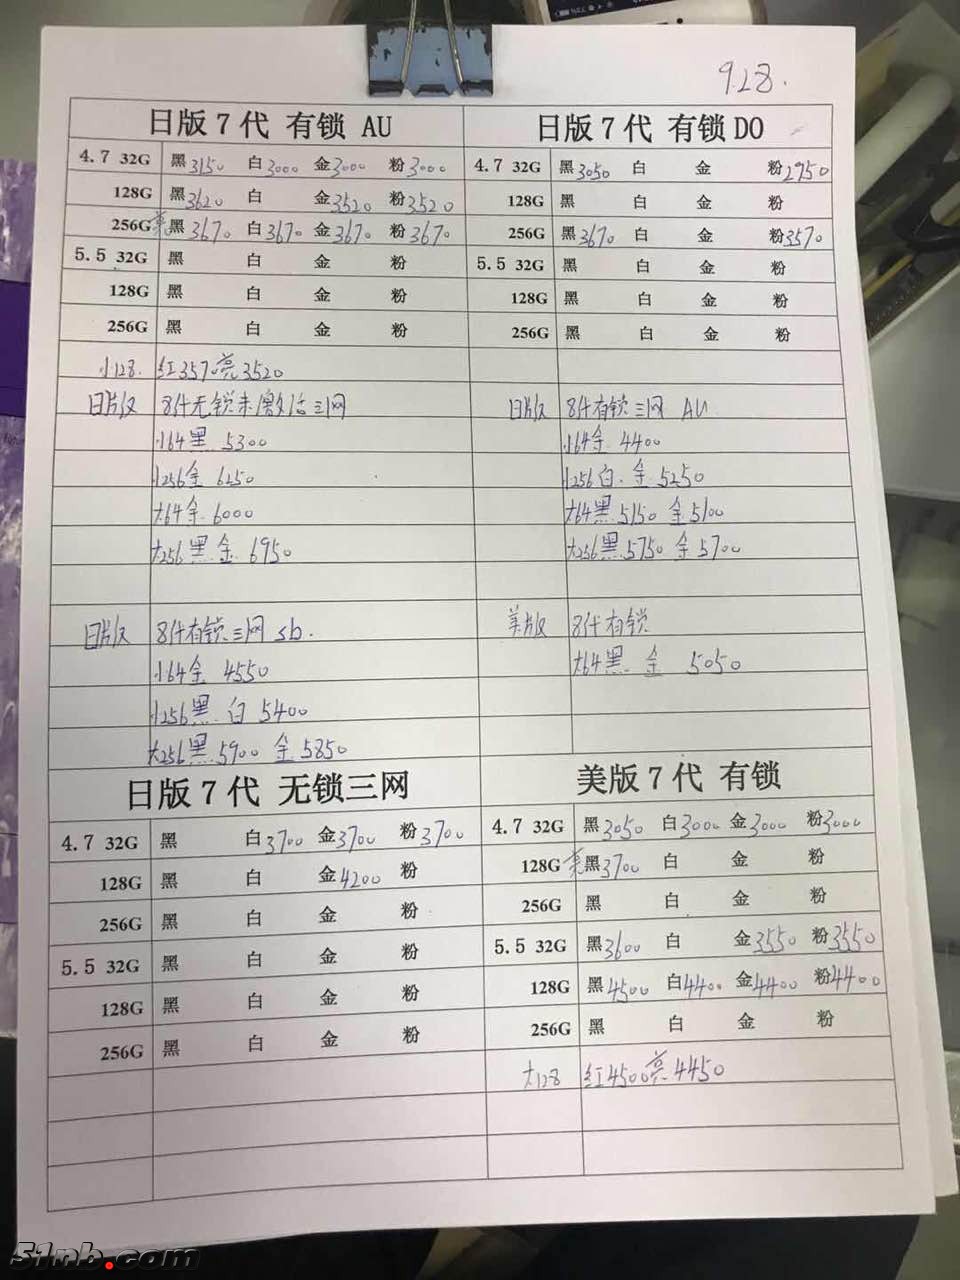 9.28.
日版7代 有锁 AU
4.7 32G 黑3150 白3000 金3000 粉3000
128G 黑3620 白 金3520 粉3520
256G 亮黑3670 白3670 金3670 粉3670
5.5 32G 黑 白 金 粉
128G 黑 白 金 粉
256G 黑 白 金 粉
小128. 红3570亮3520
日版 8代无锁未激活三网
小64黑 5300
小256金 6250
大64金.6000
大256黑.金.6950
日版 8代有锁三网 sb.
小64金 4550
小256黑.白 5400
大256黑.5900 金5850
日版7代 有锁DO
4.7 32G 黑3050 白 金 粉2950
128G 黑 白 金 粉
256G 黑3670 白 金 粉3570
5.5 32G 黑 白 金 粉
128G 黑 白 金 粉
256G 黑 白 金 粉
日版 8代有锁三网 AU
小64金 4400
小256白.金5250
大64黑5150 金5100
大256黑.5750 金5700
美版 8代有锁
大64黑.金 5050
日版7代 无锁三网
4.7 32G 黑 白3700 金3700 粉3700
128G 黑 白 金4200 粉
256G 黑 白 金 粉
5.5 32G 黑 白 金 粉
128G 黑 白 金 粉
256G 黑 白 金 粉
美版7代 有锁
4.7 32G 黑3050 白3000 金3000 粉3000
128G 亮黑3700 白 金 粉
256G 黑 白 金 粉
5.5 32G 黑3600 白 金3550 粉3550
128G 黑4500 白4400 金4400 粉4400
256G 黑 白 金 粉
大128 红4500亮4450
51nb.com